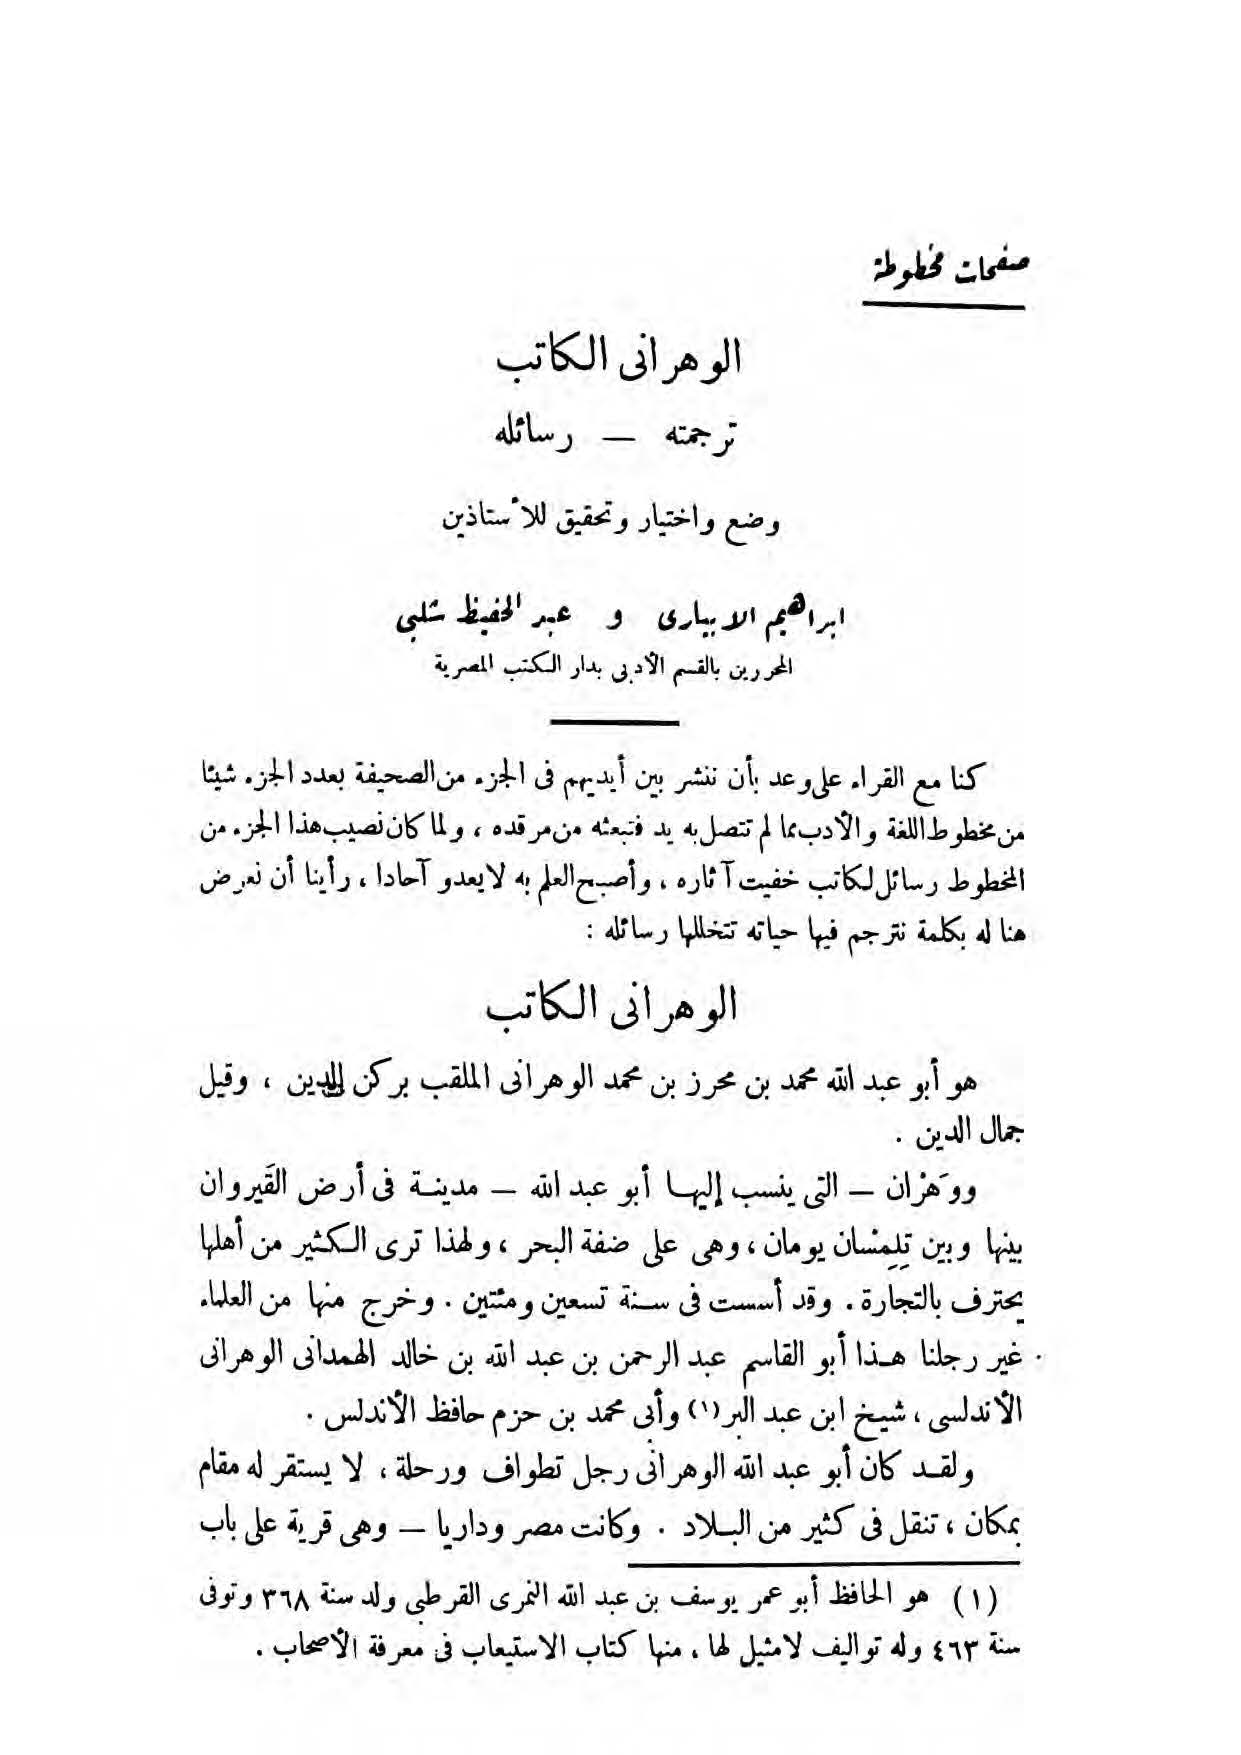 صفحات مخطوطة
الوهرانى الكاتب
ترجمته — رسائله
وضع واختيار وتحقيق للأستاذين
ابراهيم الابيارى و عبد الحفيظ شلبى
المحررين بالقسم الأدبى بدار الكتب المصرية
كنا مع القراء على وعد بأن ننشر بين أيديهم فى الجزء من الصحيفة بعدد الجزء شيئا
من مخطوط اللغة والأدب مما لم تتصل به يد فتبعثه من مرقده ، ولما كان نصيب هذا الجزء من
المخطوط رسائل لكاتب خفيت آثاره ، وأصبح العلم به لا يعدو آحادا ، رأينا أن نعرض
هنا له بكلمة نترجم فيها حياته تتخللها رسائله :
الوهرانى الكاتب
هو أبو عبد الله محمد بن محرز بن محمد الوهرانى الملقب بركن الدين ، وقيل
جمال الدين .
ووَهْران — التى ينسب إليها أبو عبد الله — مدينة فى أرض القَيروان
بينها وبين تِلِمْسان يومان ، وهى على ضفة البحر ، ولهذا ترى الكثير من أهلها
يحترف بالتجارة . وقد أسست فى سنة تسعين ومئتين . وخرج منها من العلماء
غير رجلنا هذا أبو القاسم عبد الرحمن بن عبد الله بن خالد الهمدانى الوهرانى
الأندلسى ، شيخ ابن عبد البر (١) وأبى محمد بن حزم حافظ الأندلس .
ولقد كان أبو عبد الله الوهرانى رجل تطواف ورحلة ، لا يستقر له مقام
بمكان ، تنقل فى كثير من البلاد . وكانت مصر وداريا — وهى قرية على باب
(١) هو الحافظ أبو عمر يوسف بن عبد الله النمرى القرطبى ولد سنة ٣٦٨ وتوفى
سنة ٤٦٣ وله تواليف لا مثيل لها ، منها كتاب الاستيعاب فى معرفة الأصحاب .